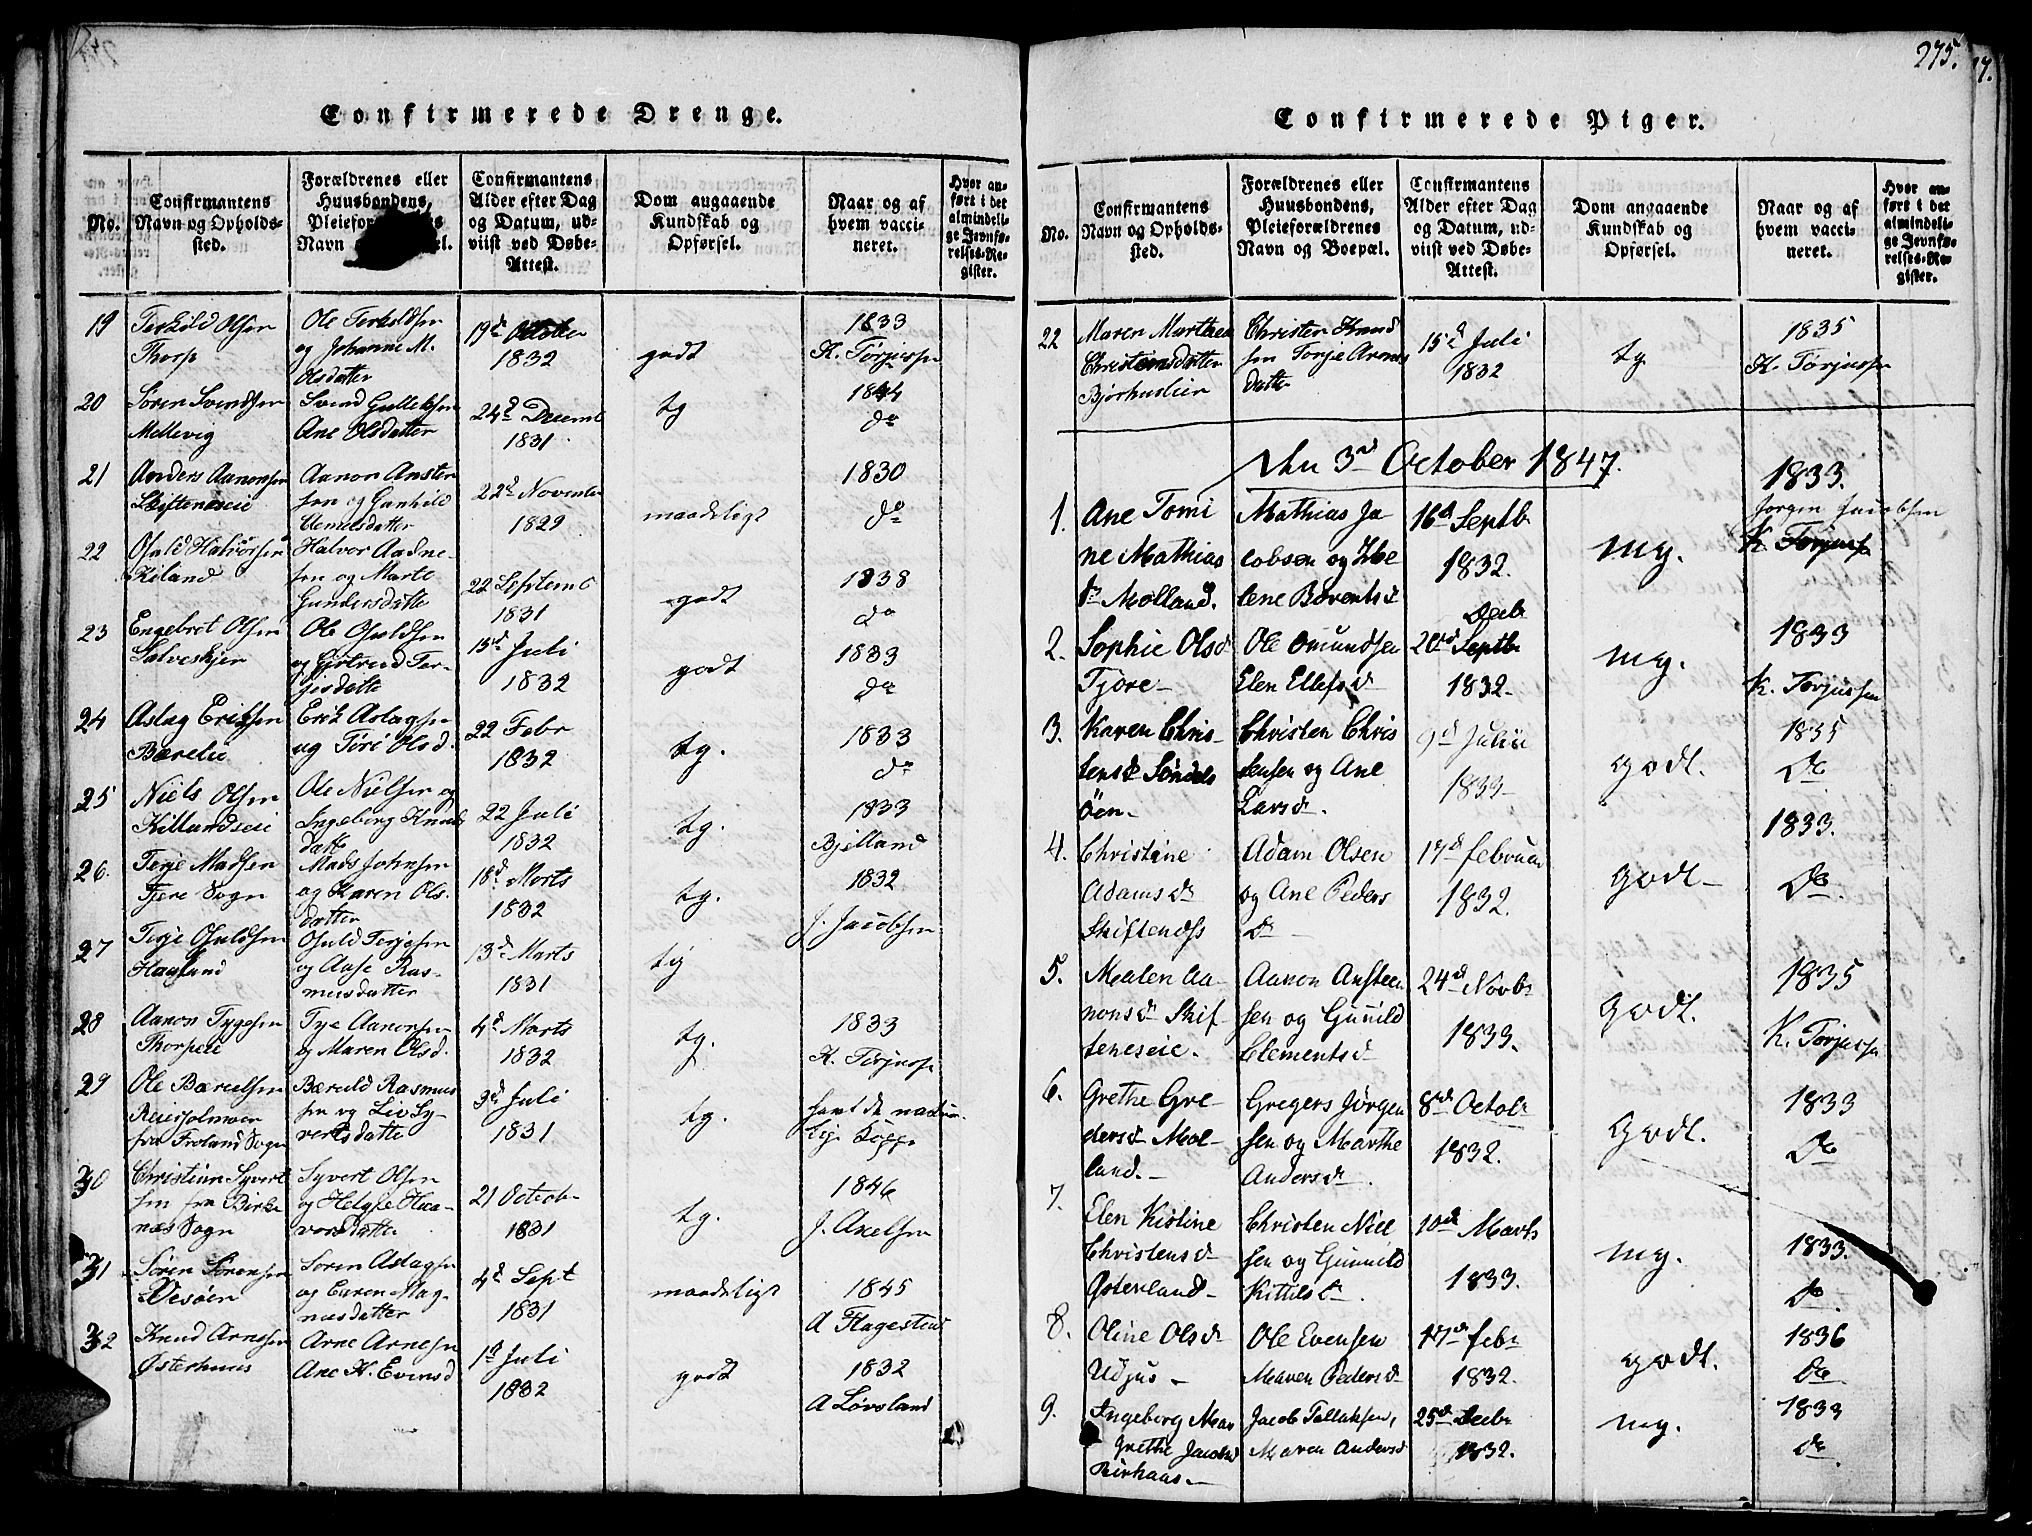 Confirmerede Drenge.
No.
Confirmantens
Navn og Opholds-
sted.
Forældrenes eller
Huusbondens,
Pleiefor
Navn
Confirmantens
Alder efter Dag
og Datum, ud-
viist ved Døbe-
Attest.
Dom angaaende
Kundskab og
Opførsel.
Naar og af
hvem vacci-
neret.
Hvor an-
ført i det
almindeli-
ge Jevnfø-
relses-Re-
gister.
19
Terkild Olsen
Thorp
Ole Terkildsen
og Johanne M.
Olsdatter
19d October
1832
godt
1833
K. Torjussen
20
Søren Svendsen
Mellevig
Svend Gulleksen
Ane Olsdatter
24d Decemb
1831.
tg
1844
do
21
Anders Aanonsen
Skiftenæseie
Aanon Ansten
sen og Gunhild
Clemetsdatter
22d November
1829
maadeligt
1830
do
22
Osuld Halvorsen
Kiland
Halvor Aadne-
sen og Marte
Gundersdatte
22 Septemb
1831
godt
1838
do
23
Engebret Olsen
Salveskjer
Ole Osuldsen
og Gjertrud Ter-
jisdatte
15d Juli
1832
godt
1833
do
24
Aslag Eriksen
Bærelie
Erik Aslagsen
og Tori Olsd.
22 Febr
1832
tg.
1833
do
25
Niels Olsen
Killandseie
Ole Nielsen og
Ingeborg Knuds
datt
22 Juli
1832
tg.
1833
Bjelland
26.
Terje Madsen
Fjere Sogn
Mads Johnsen
og Karen Ols-
datter
18d Marts
1832
tg.
1832
J. Jacobsen
27
Terje Osuldsen
Haugland
Osuld Terjesen
og Aase Ras-
musdatter
13d Marts
1831
tg
28
Aanon Tygesen
Thorpeie
Tyge Aanonsen
og Maren Olsd.
4d Marts
1832
tg.
1833
K. Torjusse
29
Ole Bærulsen
fra Froland Sogn
Bæruld Rasmus
sen og Liv Sy-
vertsdatte
3d Juli
1831
tg.
havt de natur-
lige Kopper
30
Christian Syvert
sen fra Birke
næs Sogn
Syvert Olsen
og Helge Hal-
vorsdatte
21 Octob-
1831
tg.
1846
J. Axelsen
31
Søren Sørensen
Vesøen
Søren Aslagsen
og Karen Mag-
nusdatter
4d Sept
1831
maadeligt
1845
A Flagestad
32
Knud Arnesen
Østerhuus
Arne Arnesen
Ane K. Evensd
1d Juli
1832
godt
1832
A Løvsland
275.
Confirmerede Piger.
No.
Confirmantens
Navn og Opholds-
sted.
Forældrenes eller
Huusbondens,
Pleieforældrenes
Navn og Boepæl.
Confirmantens
Alder efter Dag
og Datum, ud-
viist ved Døbe-
Attest.
Dom angaaende
Kundskab og
Opførsel.
Naar og af
hvem vacci-
neret.
Hvor an-
ført i det
almindeli-
ge Jevnfø-
relses-Re-
gister.
22
Maren Marthea
Christensdatter
Bjørhuslien
Christen Knud
sen Torje Arons
datte
15d Juli
1832
tg
1835
K. Torjussen
den 3d October 1847.
1.
Ane Tomi
ne Mathias
dr Molland.
Mathias Ja
cobsen og He
lene Bœrentsd
16d Septb
1832.
mg.
1833.
Jørgen Jacobsen
K. Torjussen
2.
Sophie Olsd
Tjore-
Ole Omundsen
Elen Ellefsd
Decb
20d Septb
1832.
mg.
1833
K. Torjussen
3.
Karen Chris-
tensd Søndels
öen.
Christen Chris
tensen og Ane
Larsd.
9d Julii
1833-
godt.
1835
Do
4.
Christine
Adamsd
Skiftenæs
Adam Olsen
og Ane Peders
d
17d februar
1832.
godt-
1833.
Do.
5.
Malen Aa-
nonsd Skif-
teneseie.
Aanon Ansten
sen og Gunild
Clementsd
24d Novb
1833.
godt.
1835
K. Torjussen
6.
Grethe Gre-
dersd Mol-
land.-
Gregers Jørgen
sen og Marthe
Andersd.
8d Octob
1832.
godt.
1833
Do
7.
Elen Kistine
Christensd
Østerland-
Christen Niel
sen og Gunnild
Kittilsd.
10d Marts
1833.
mg.
1833.
Do.
8.
Oline Olsd
Udjus-
Ole Evensen
Maren Pedersd
17d feb
1832.
godt.
1836
Do.
9.
Ingeborg Mar
Grethe Jacobsd
Birhaas-
Jacob Tellaksen,
Maren Andersd
25d Decb
1832.
mg.
1833
do